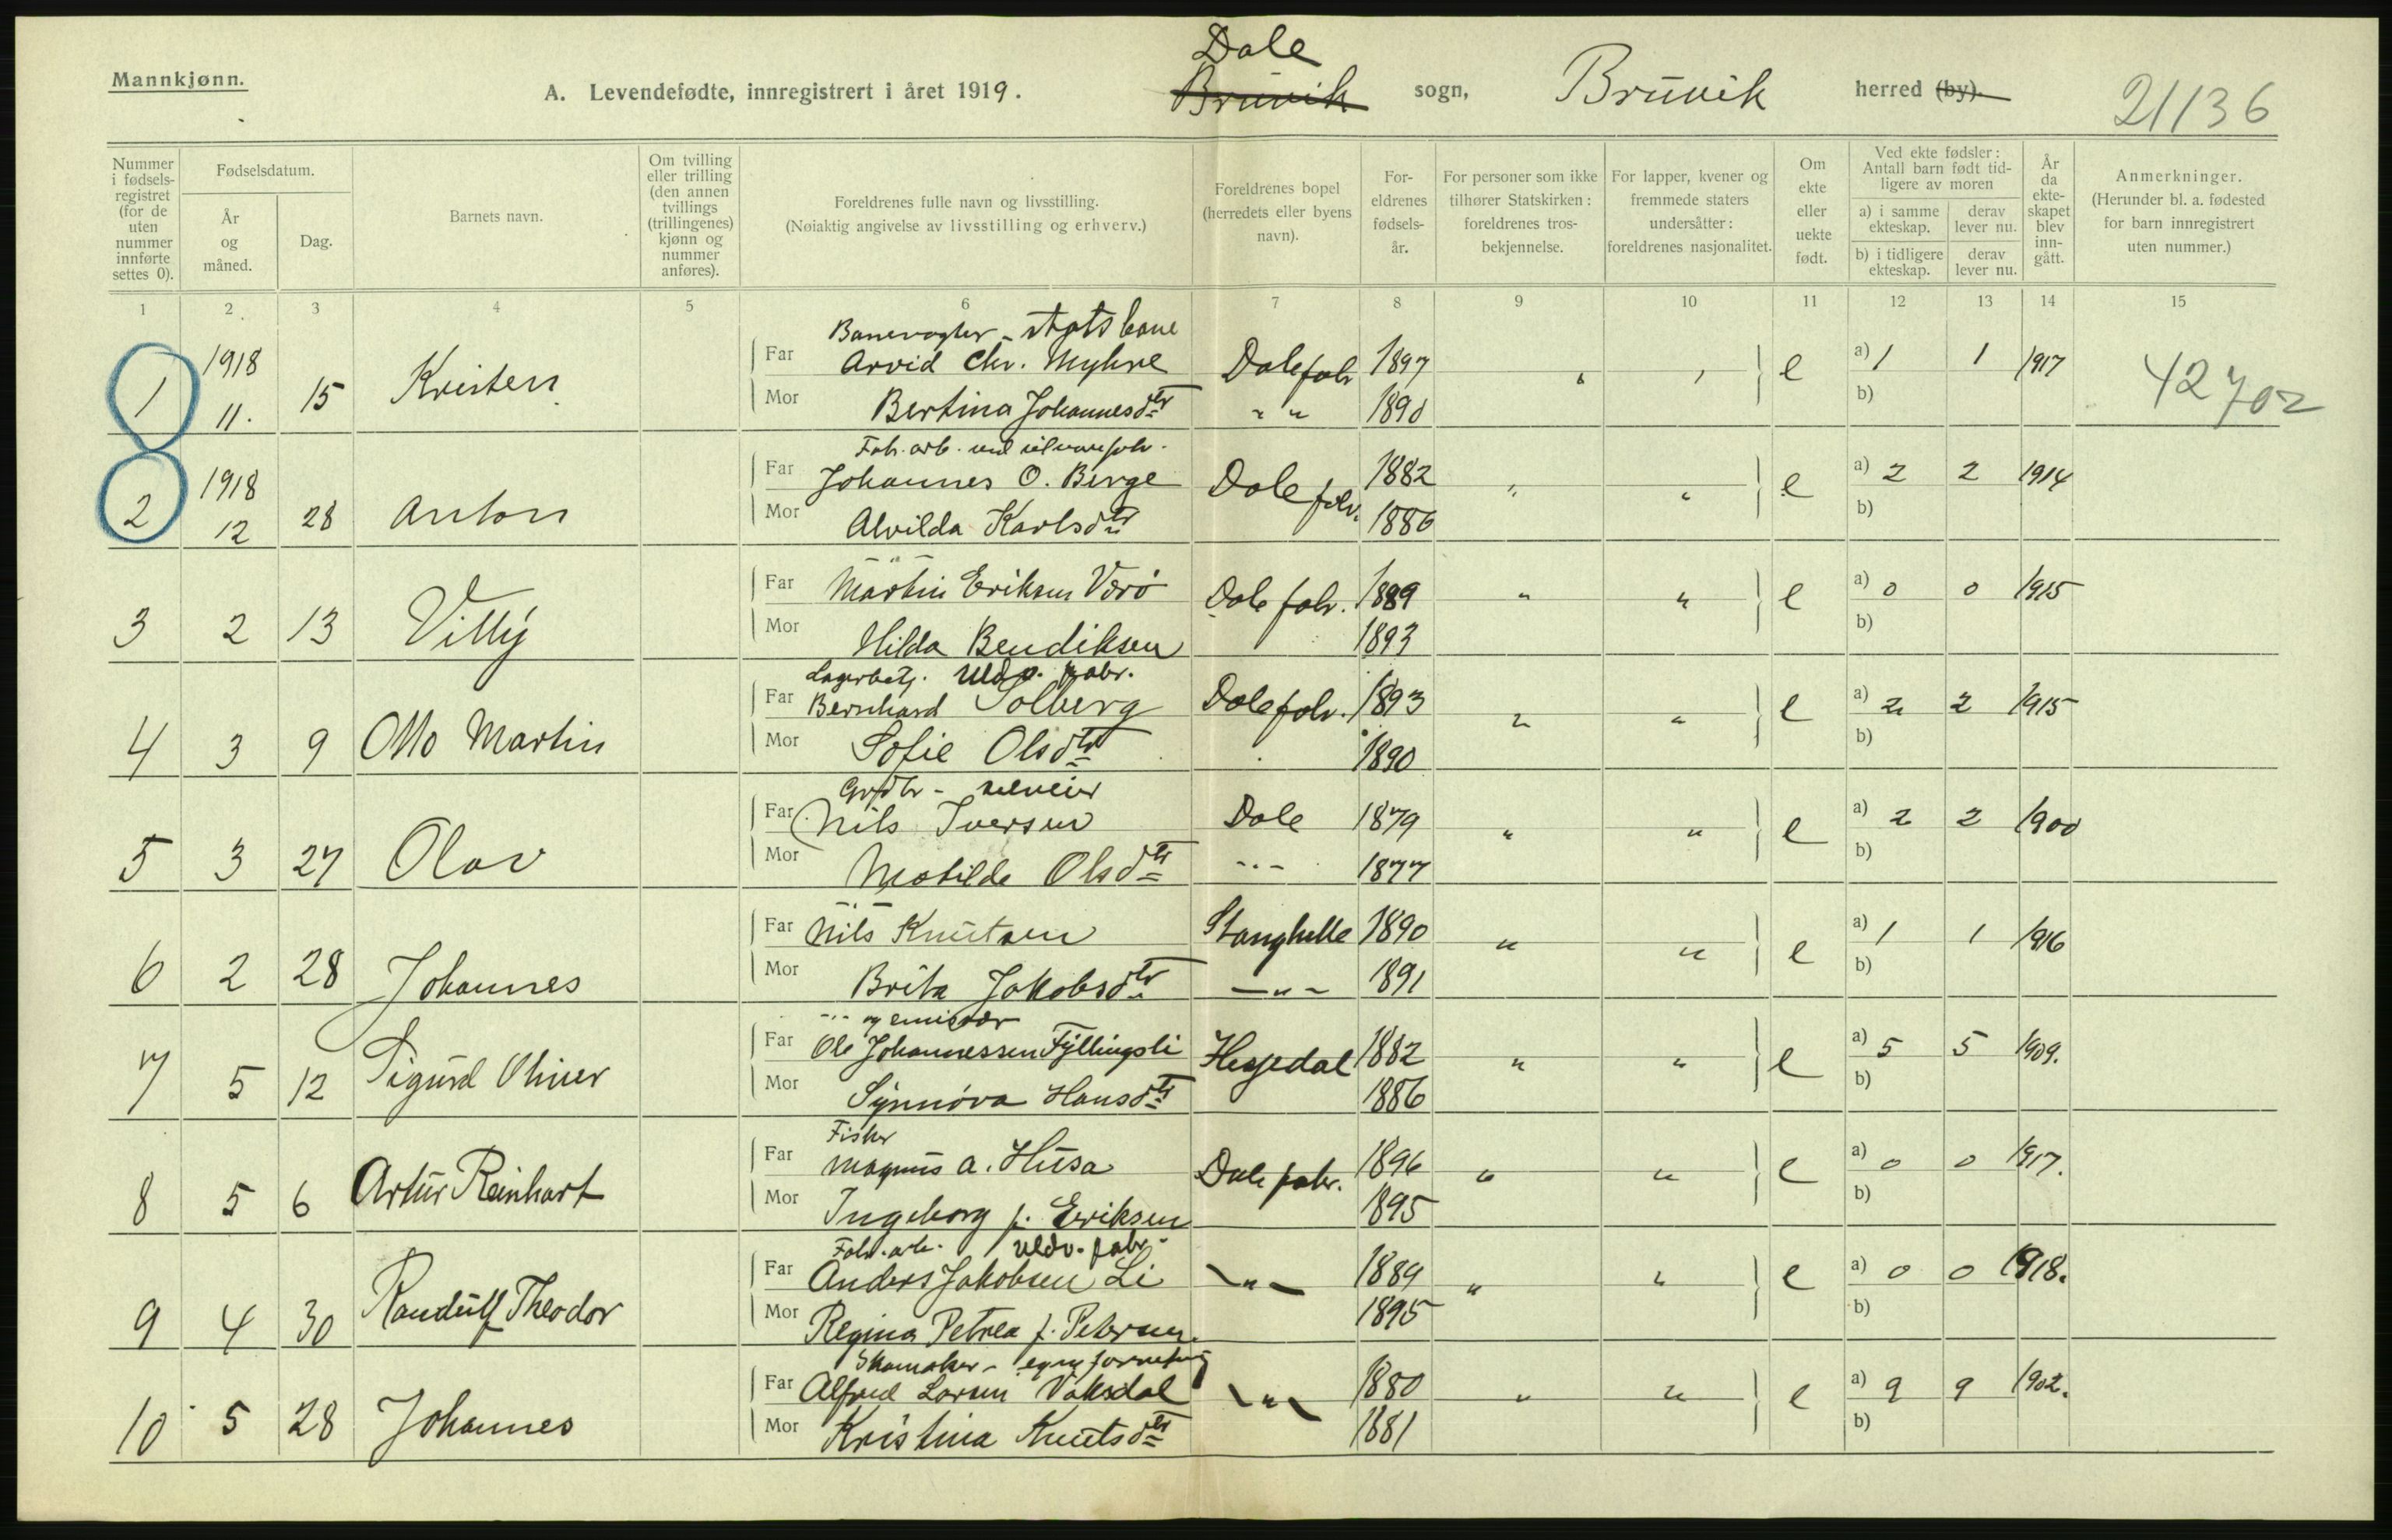 Dale
Mannkjønn.
A. Levendefødte, innregistrert i året 1919. Bruvik sogn, Bruvik herred (by). 21136
Nummer i fødsels-registret (for de uten nummer innførte settes 0).
Fødselsdatum.
År og måned.
Dag.
Barnets navn.
Om tvilling eller trilling (den annen tvillings (trillingenes) kjønn og nummer anføres).
Foreldrenes fulle navn og livsstilling.
(Nøiaktig angivelse av livsstilling og erhverv.)
Foreldrenes bopel (herredets eller byens navn).
For-eldrenes fødsels-år.
For personer som ikke tilhører Statskirken: foreldrenes tros-bekjennelse.
For lapper, kvener og fremmede staters undersåtter: foreldrenes nasjonalitet.
Om ekte eller uekte født.
Ved ekte fødsler: Antall barn født tid-ligere av moren
a) i samme ekteskap.
derav lever nu.
b) i tidligere ekteskap.
derav lever nu.
År da ekte-skapet blev inn-gått.
Anmerkninger.
(Herunder bl. a. fødested for barn innregistrert uten nummer.)
1 2 3 4 5 6 7 8 9 10 11 12 13 14 15
Banevogter - statsbane
1 1918 11. 15 Kristen Far Arvid Chr. Myhre Dale fabr 1897 " " e a) 1 1 1917 42702
Mor Bertina Johannesdtr " " 1890 b)
Fab. arb. ved uldvarefabr.
2 1918 12 28 Anton Far Johannes O. Berge Dale fabr. 1882 " " e a) 2 2 1914
Mor Alvilda Karlsdtr 1886 b)
— " —
3 2 13 Villy Far Martin Eriksen Værö Dale fabr. 1889 " " e a) 0 0 1915
Mor Hilda Bendiksen 1893 b)
Lagerbetj. Uldv. fabr.
4 3 9 Otto Martin Far Bernhard Solberg Dale fabr. 1893 " " e a) 2 2 1915
Mor Sofie Olsdtr 1890 b)
Grdbr - selveier
5 3 27 Olav Far Nils Iversen Dale 1879 " " e a) 2 2 1900
Mor Matilde Olsdtr -"- 1877 b)
— " —
6 2 28 Johannes Far Nils Knutsen Stanghelle 1890 " " e a) 1 1 1916
Mor Brita Jakobsdtr —"— 1891 b)
-"- og emissær
7 5 12 Sigurd Oliver Far Ole Johannessen Fyllingsli Hesjedal 1882 " " e a) 5 5 1909.
Mor Synnöva Hansdtr 1886 b)
Fisker
8 5 6 Artur Reinhart Far Magnus A. Husa Dale fabr. 1896 " " e a) 0 0 1917.
Mor Ingeborg f. Eriksen 1895 b)
Fabr. arb. uldv. fabr.
9 4 30 Randulf Theodor Far Anders Jakobsen Li —"— 1889 " " e a) 0 0 1918.
Mor Regina Petrea f. Petersen. 1895 b)
Skomaker - egen forretning
10 5 28 Johannes Far Alfred Larsen Vaksdal —"— 1880 " " e a) 9 9 1902.
Mor Kristina Knutsdtr 1881 b)